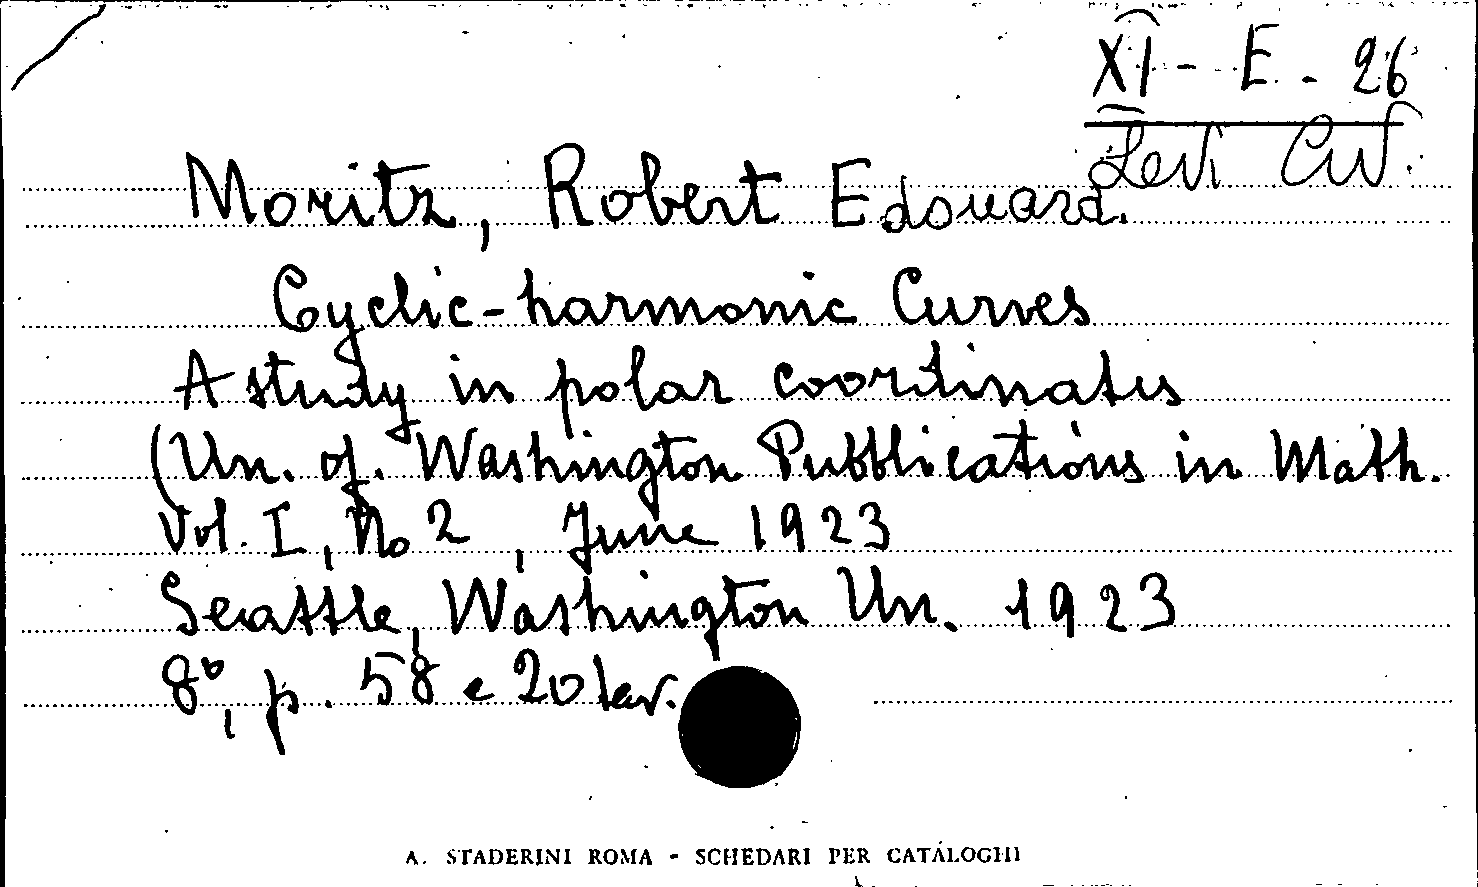 XI - E - 26
Levi Civ.
Moritz, Robert Edouard.
Cyclic-harmonic Curves
A study in polar coordinates
(Un. of. Washington Pubblications in Math.
Vol. I, No 2, June 1923
Seattle, Washington Un. 1923
8°, p. 58 e 20 tav.
A. STADERINI ROMA - SCHEDARI PER CATALOGHI